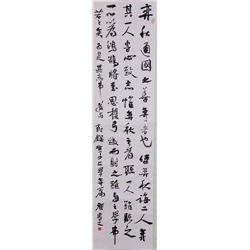 弈秋通國之善弈者也使弈秋誨二人弈
其一人專心致志惟弈秋之為聽一人雖聽之
一心為鴻鵠將至思援弓繳而射之雖與之學弗
若之矣為是其弗若與